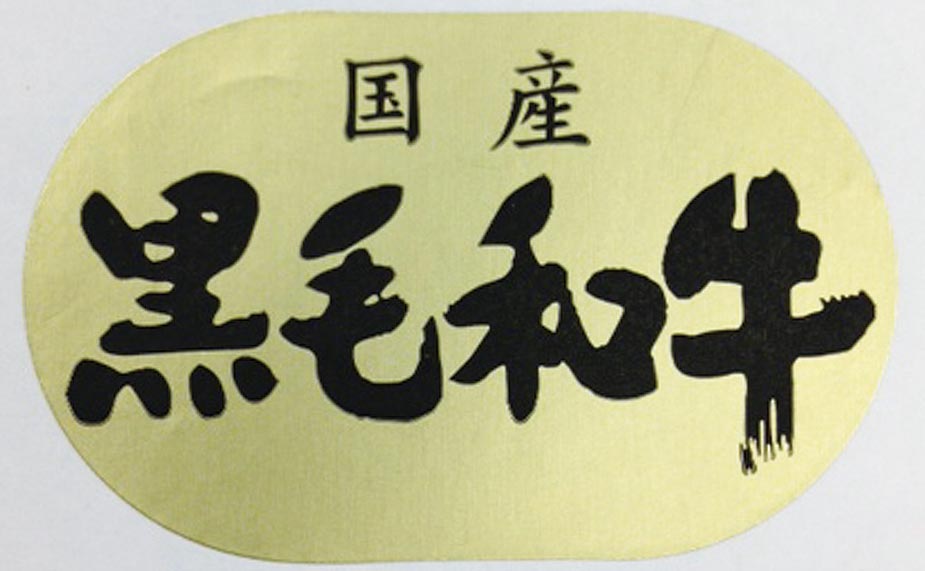 国産
黒毛和牛